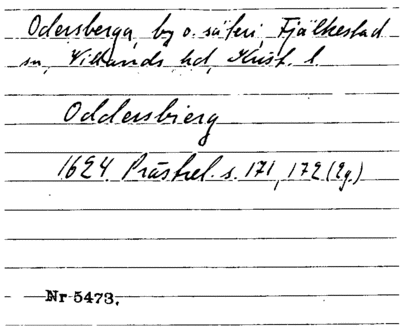 Odersberga, by o. säteri, Fjälkestad
sn, Villands hd, Krist. l.
Oddersbierg
1624 Prästrel. s. 171, 172 (2g.)
Nr 5473.